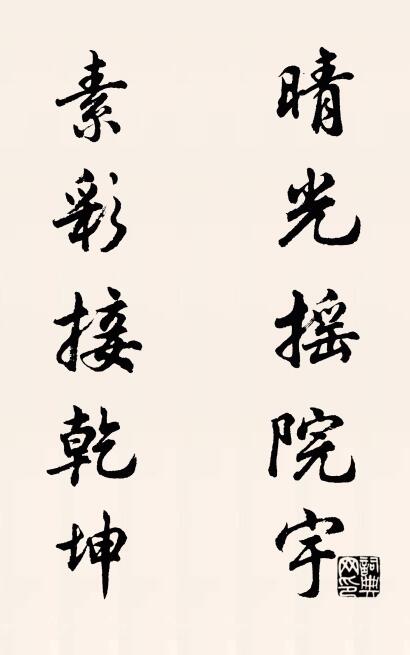 晴光摇院宇
素彩接乾坤
詞典网印